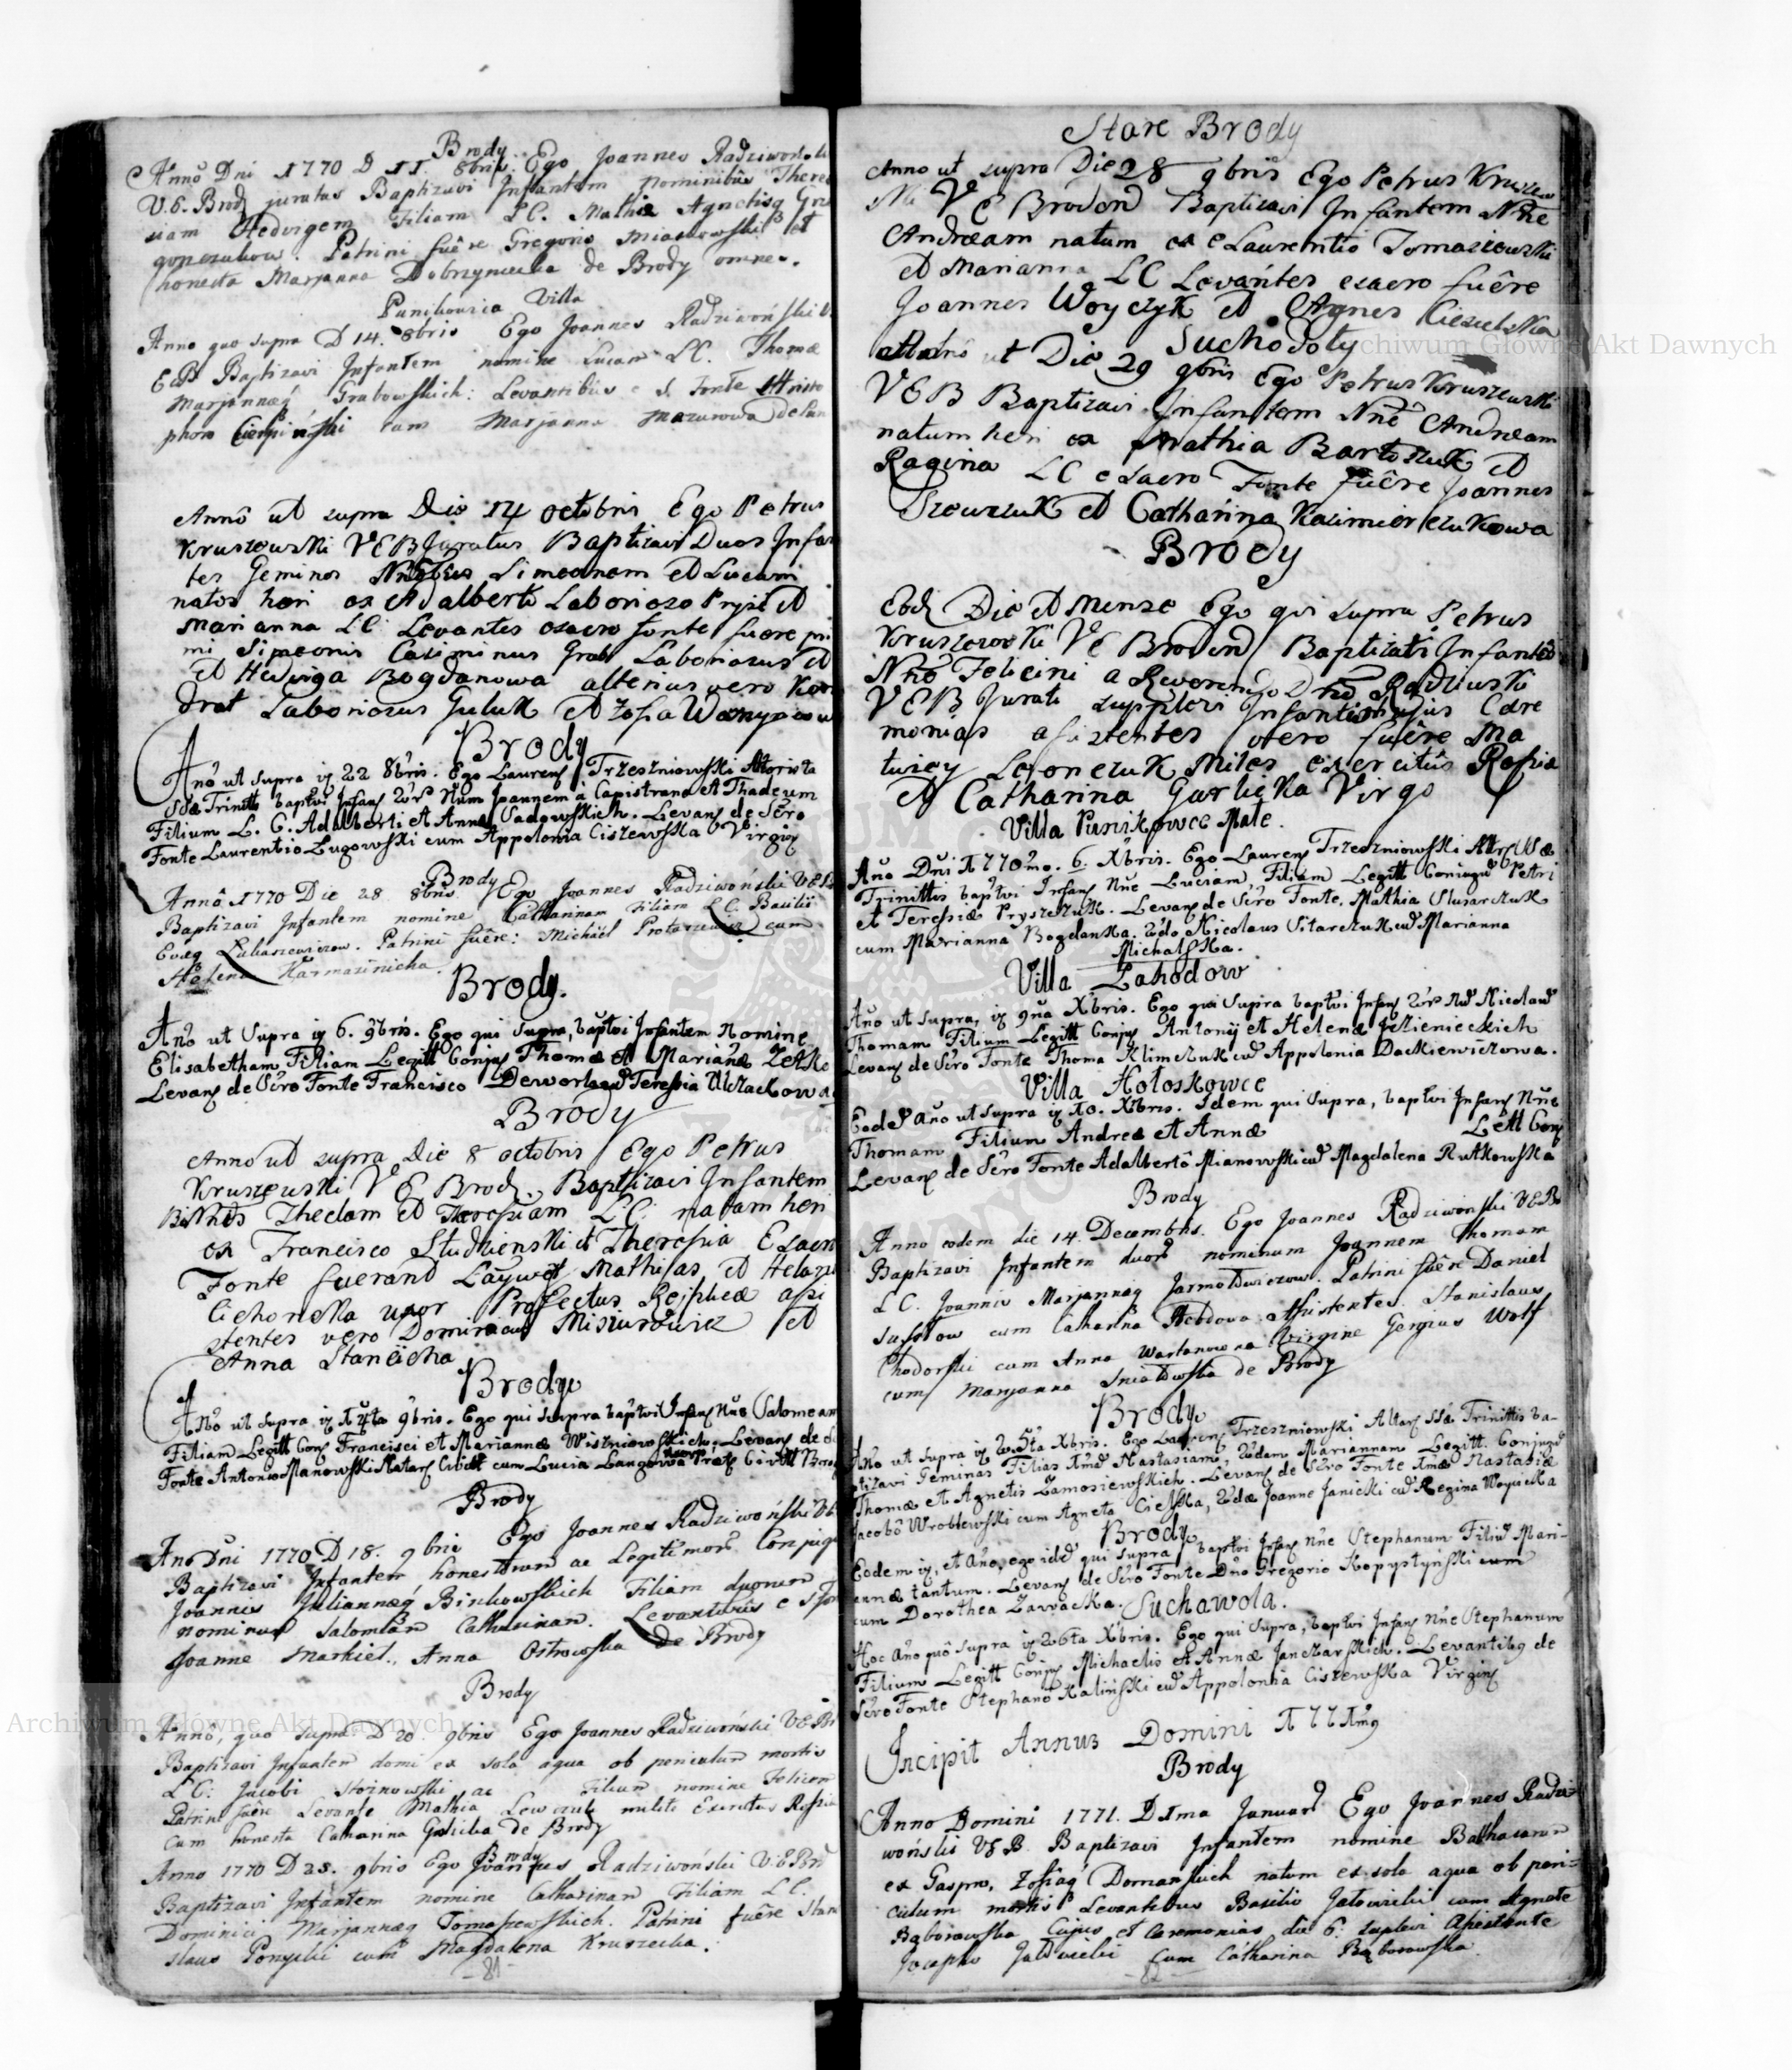 Brody
Anno Dni 1770 D 11. 8bris. Ego Joannes Radziwoński
V.E. Brod juratus Baptizavi Infantem nominibus There
siam Hedvigem Filiam LC. Mathiæ Agnetisq
Patrini fuêre Gregoris Miaskowski et
honesta Marjanna Dobrzyniecka de Brody omnes.
Punikowia Villa
Anno quo supra D 14. 8bris Ego Joannes Radziwoński V.
E B Baptizavi Infantem nomine Lucam LC. Thomæ
Marjannæq Grabowskich: Levantibus e s. Fonte Christo
phoro Cierpiński cum Marjanna Mazurowa
Annô ut supra Die 14 octobris Ego Petrus
Kruszewski VEB Juratus Baptizavi Duos Infan
tes Geminos Simeonem et Lucam
natos heri ex Adalberto Laborioso et
Marianna LC Levantes esacro fonte fuere pri
mi Simeonis Casimirus Laboriosus et
et Hedviga Bogdanowa alterius vero Kon
drat Laboriosus Guluk et Zofia
Brody
Anô ut Supra 22 8bris. Ego Laurens Trzeszniowski Altarista
SSæ Trinitts baptvi Infans Joannem à Capistrano et Thadeum
Filium L. C. Adalberti et Annæ Sadowskich. Levans de Sêro
Fonte Laurentio Lugowski cum Appolonia Ciszewska Virgins
Brody
Annô 1770 Die 28 8bris. Ego Joannes Radziwoński VEB
Baptizavi Infantem nomine Catharinam Filiam LC. Basilii
Evæq Lukaszewiczow. Patrini fuêre: Michael Protasiewicz cum
Helena Karmazinicha.
Brody.
Anô ut Supra 6. 9bris. Ego qui Supra, baptvi Infantem Nomine
Elisabetham, Filiam Legitt Conjug Thomæ et Marianæ Zetko
Levans de Sêro Fonte Francisco cum Teressia
Brody
Anno ut supra Die 8 octobris Ego Petrus
Kruszewski V E Brod. Baptizavi Infantem
Theclam et Theressiam LC natam heri
ex Francisco Studzienski et Theresia Esacro
Fonte fuerant Mathias et
Cichonska uxor Præfectus Reiplicæ assi
stentes vero Dominicus Misiurowicz et
Anna Stanecicha
Brody
Anô ut Supra 14ta 9bris. Ego qui Supra baptvi Infans Nne Salomeam
Filiam Legitt Conj Francisci et Mariannæ Wiszniowskich. Levans de
Fonte Antonio Manowski cum Lucia
Brody
Ano Dni 1770 D 18. 9bris Ego Joannes Radziwoński VE
Baptizavi Infantem honestorum ac Legitimor Conjug
Joannis Juliannæq Binkowskich Filiam duorum
nominum Salomeam Catharinam. Levantibus e s Fon
Joanne Markiel., Anna Ostrowska de Brody
Brody
Anno, quo supra D 20. 9bris Ego Joannes Radziwoński VEB
Baptizavi Infantem domi ex sola aqua ob periculum mortis
L C: Jacobi ac Filium nomine Felicem
Patrini fuêre Levante Mathia Lewczuk milite Exercitus Rossiæ
cum honesta Catharina de Brody
Brody
Anno 1770 D 25. 9bris Ego Joannes Radziwoński V.E.Brd
Baptizavi Infantem nomine Catharinam Filiam L C.
Dominici Marjannæq Tomaszewskich. Patrini fuêre Stani
slaus cum Magdalena Kruszecka.
- 81 -
Stare Brody
Anno ut supra Die 28 9bris Ego Petrus Kruszew
ski V E Broden Baptizavi Infantem Nne
Andream natum ex Laurentio Tomaszewski
et Marianna LC Levantes esacro fuêre
Joannes Woyczyk et Agnes
Suchodoly
Annô ut Die 29 9bris Ego Petrus Kruszewski
VEB Baptizavi Infantem Nne Andream
natum heri ex Mathia Bartoszuk et
Ragina LC e sacro Fonte fuêre Joannes
Szewczuk et Catharina Kazimierczukowa
Brody
Eod Die et Mense Ego qui supra Petrus
Kruszewski V E Broden Baptizati Infantis
Nne Felicini a Reverendo Dno Radziwski
VEB Jurati supplevi Infantis hujus Cære
monias assistentes vero fuêre Ma
twiey Lewonczuk Miles exercitus Rossiæ
et Catharina Garlicka Virgo
Villa Punikowce Małe.
Año Dni 1770mo. 6. Xbris. Ego Laurens Trzeszniowski Altar SSæ
Trinittis baptvi Infans Nne Luciam, Filiam Legitt Coniugum Petri
et Teressiæ Pryszczuk. Levans de Sêro Fonte, Mathia Slusarczuk
cum Marianna Bogdanka. 2do Nicolaus Sitarczuk cum Marianna
Michalska.
Villa Zahodow
Año ut Supra, 9na Xbris. Ego qui Supra baptvi Infans Nicolaum
Thomam Filium Legitt Conjug Antonij et Helenæ Zielenieckich
Levans de Sêro Fonte Thoma Klimczuk cum Appolonia Dackiewiczowa.
Villa Hołoskowce
Eodem año ut Supra 10. Xbris. Idem qui Supra, baptvi Infans Nne
Thomam Filium Andreæ et Annæ Lett Conj
Levans de Sêro Fonte Adalbertô Mianowski cum Magdalena Rutkowska
Brody
Anno eodem die 14. Decembris. Ego Joannes Radziwoński VEB
Baptizavi Infantem duor nominum Joannem Thomam
L C. Joannis Marjannæq Jarmołowiczow. Patrini fuêre Daniel
cum Catharina Assistentes. Stanislaus
Chodorski cum Anna Wartanowna Virgine Gergius Wolf
cum Marjanna Sniatowska de Brody
Brody
Anô ut Supra 25ta Xbris. Ego Laurens Trzeszniowski Altars SSæ Trinittis ba-
ptizavi Geminas Filias 1mam Nastasiam, 2dam Mariannam Legitt. Coniugum
Thomæ et Agnetis Zamosiewskich. Levans de Sêro Fonte 1mæ Nastasiæ
Jacobô Wroblewski cum Agneta, 2dæ Joanne Janicki cum Regina Woycicka
Brody
Eodem, et Año, ego idem qui Supra baptvi Infans Nne Stephanum Filium Mari-
annæ tantum. Levans de Sêro Fonte Dno Gregorio Kopystyński cum
cum Dorothea Zawacka.
Suchawola.
Hoc año quô Supra 26ta Xbris. Ego qui Supra, baptvi Infans Nne Stephanum
Filium Legitt Conjug Michaelis et Annæ Janczarskich. Levantibq de
Sêro Fonte Stephanô Kaliński cum Appolonia Ciszewska Virgins
Incipit Annus Domini 1771mq
Brody
Anno Domini 1771. D 1ma Januar Ego Joannes Radzi-
woński VEB Baptizavi Infantem nomine Balthasarem
ex Gaspro, Zofiaq Domanskich natum ex sola aqua ob peri-
culum mortis Levantibus Basilio cum Agnete
Bąborowska Cujus et Ceremonias die 6. suplevi Assistente
Josepho cum Catharina Bąborowska.
- 82 -
Archiwum Główne Akt Dawnych
Archiwum Główne Akt Dawnych